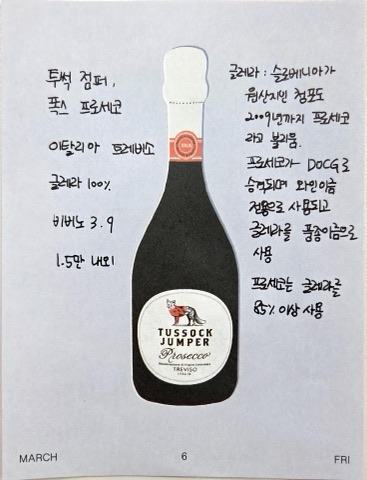 투썩 점퍼,
폭스 프로세코
이탈리아 트레비소
글레라 100%
비비노 3.9
1.5만 내외
글레라 : 슬로베니아가
원산지인 청포도
2009년까지 프로세코
라고 불리움.
프로세코가 DOCG로
승격되며 와인이름
전용으로 사용되고
글레라를 품종이름으로
사용
프로세코는 글레라를
85% 이상 사용
TUSSOCK
JUMPER
Prosecco
TREVISO
MARCH 6 FRI